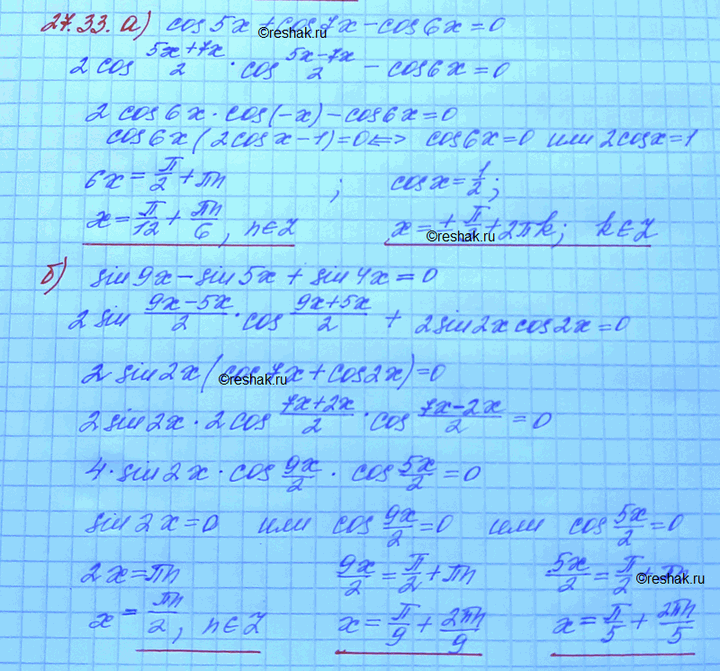 27.33. а) cos 5x + cos 7x − cos 6x = 0
©reshak.ru
2 cos (5x+7x)/2 · cos (5x−7x)/2 − cos 6x = 0
2 cos 6x · cos(−x) − cos 6x = 0
cos 6x (2 cos x − 1) = 0 <=> cos 6x = 0 или 2 cos x = 1
6x = π/2 + πn ; cos x = 1/2;
x = π/12 + πn/6, n ∈ Z x = ± π/ + 2πk; k ∈ Z
©reshak.ru
б) sin 9x − sin 5x + sin 4x = 0
2 sin (9x−5x)/2 · cos (9x+5x)/2 + 2 sin 2x cos 2x = 0
2 sin 2x (cos 7x + cos 2x) = 0
©reshak.ru
2 sin 2x · 2 cos (7x+2x)/2 · cos (7x−2x)/2 = 0
4 · sin 2x · cos 9x/2 · cos 5x/2 = 0
sin 2x = 0 или cos 9x/2 = 0 или cos 5x/2 = 0
2x = πn 9x/2 = π/2 + πn 5x/2 = π/2 + πn
©reshak.ru
x = πn/2, n ∈ Z x = π/9 + 2πn/9 x = π/5 + 2πn/5